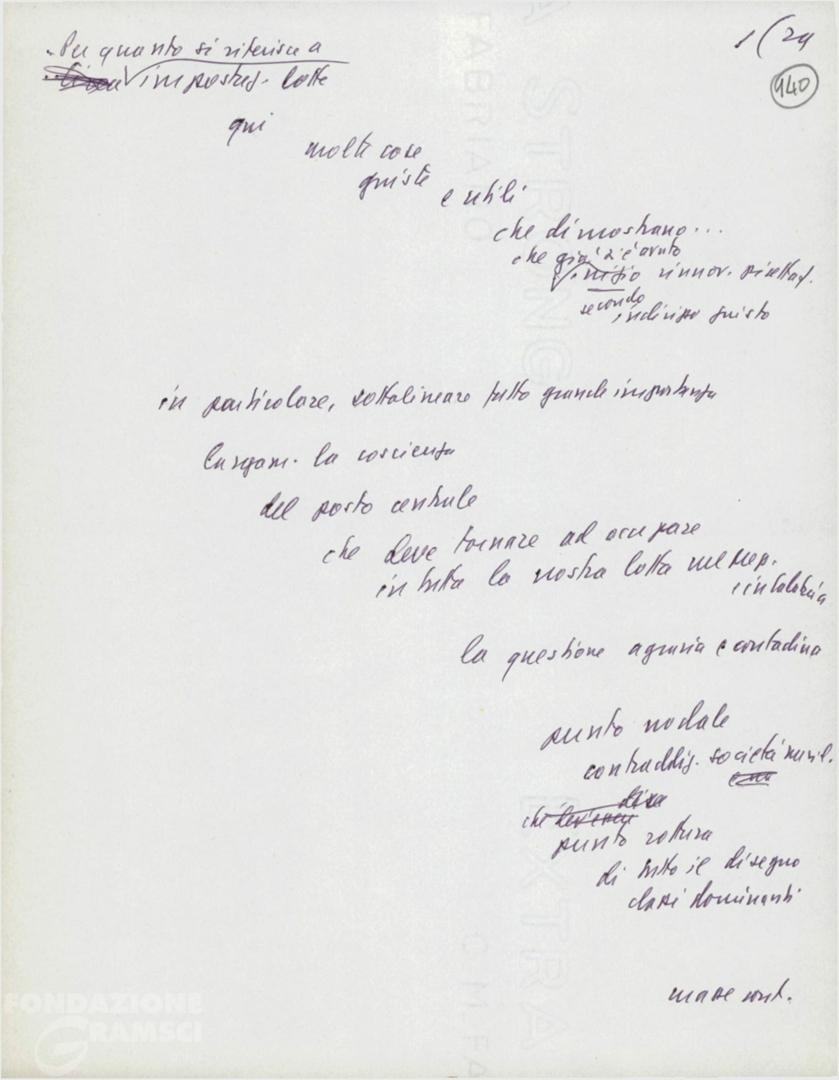 1(24
940
Per quanto si riferisce a
impostaz. lotte
qui
molte cose
giuste
e utili
che dimostrano...
che già si è avuto
inizio rinnov.
secondo
indirizzo giusto
in particolare, sottolineare tutta grande importanza
la coscienza
del posto centrale
che deve tornare ad occupare
in tutta la nostra lotta nel Mer.
e in Calabria
la questione agraria e contadina
punto nodale
contraddiz. società merid.
che
punto rottura
di tutto il disegno
classi dominanti
masse cont.
FONDAZIONE
GRAMSCI
A STRONG
FABRIANO
EXTRA
C.M.FA